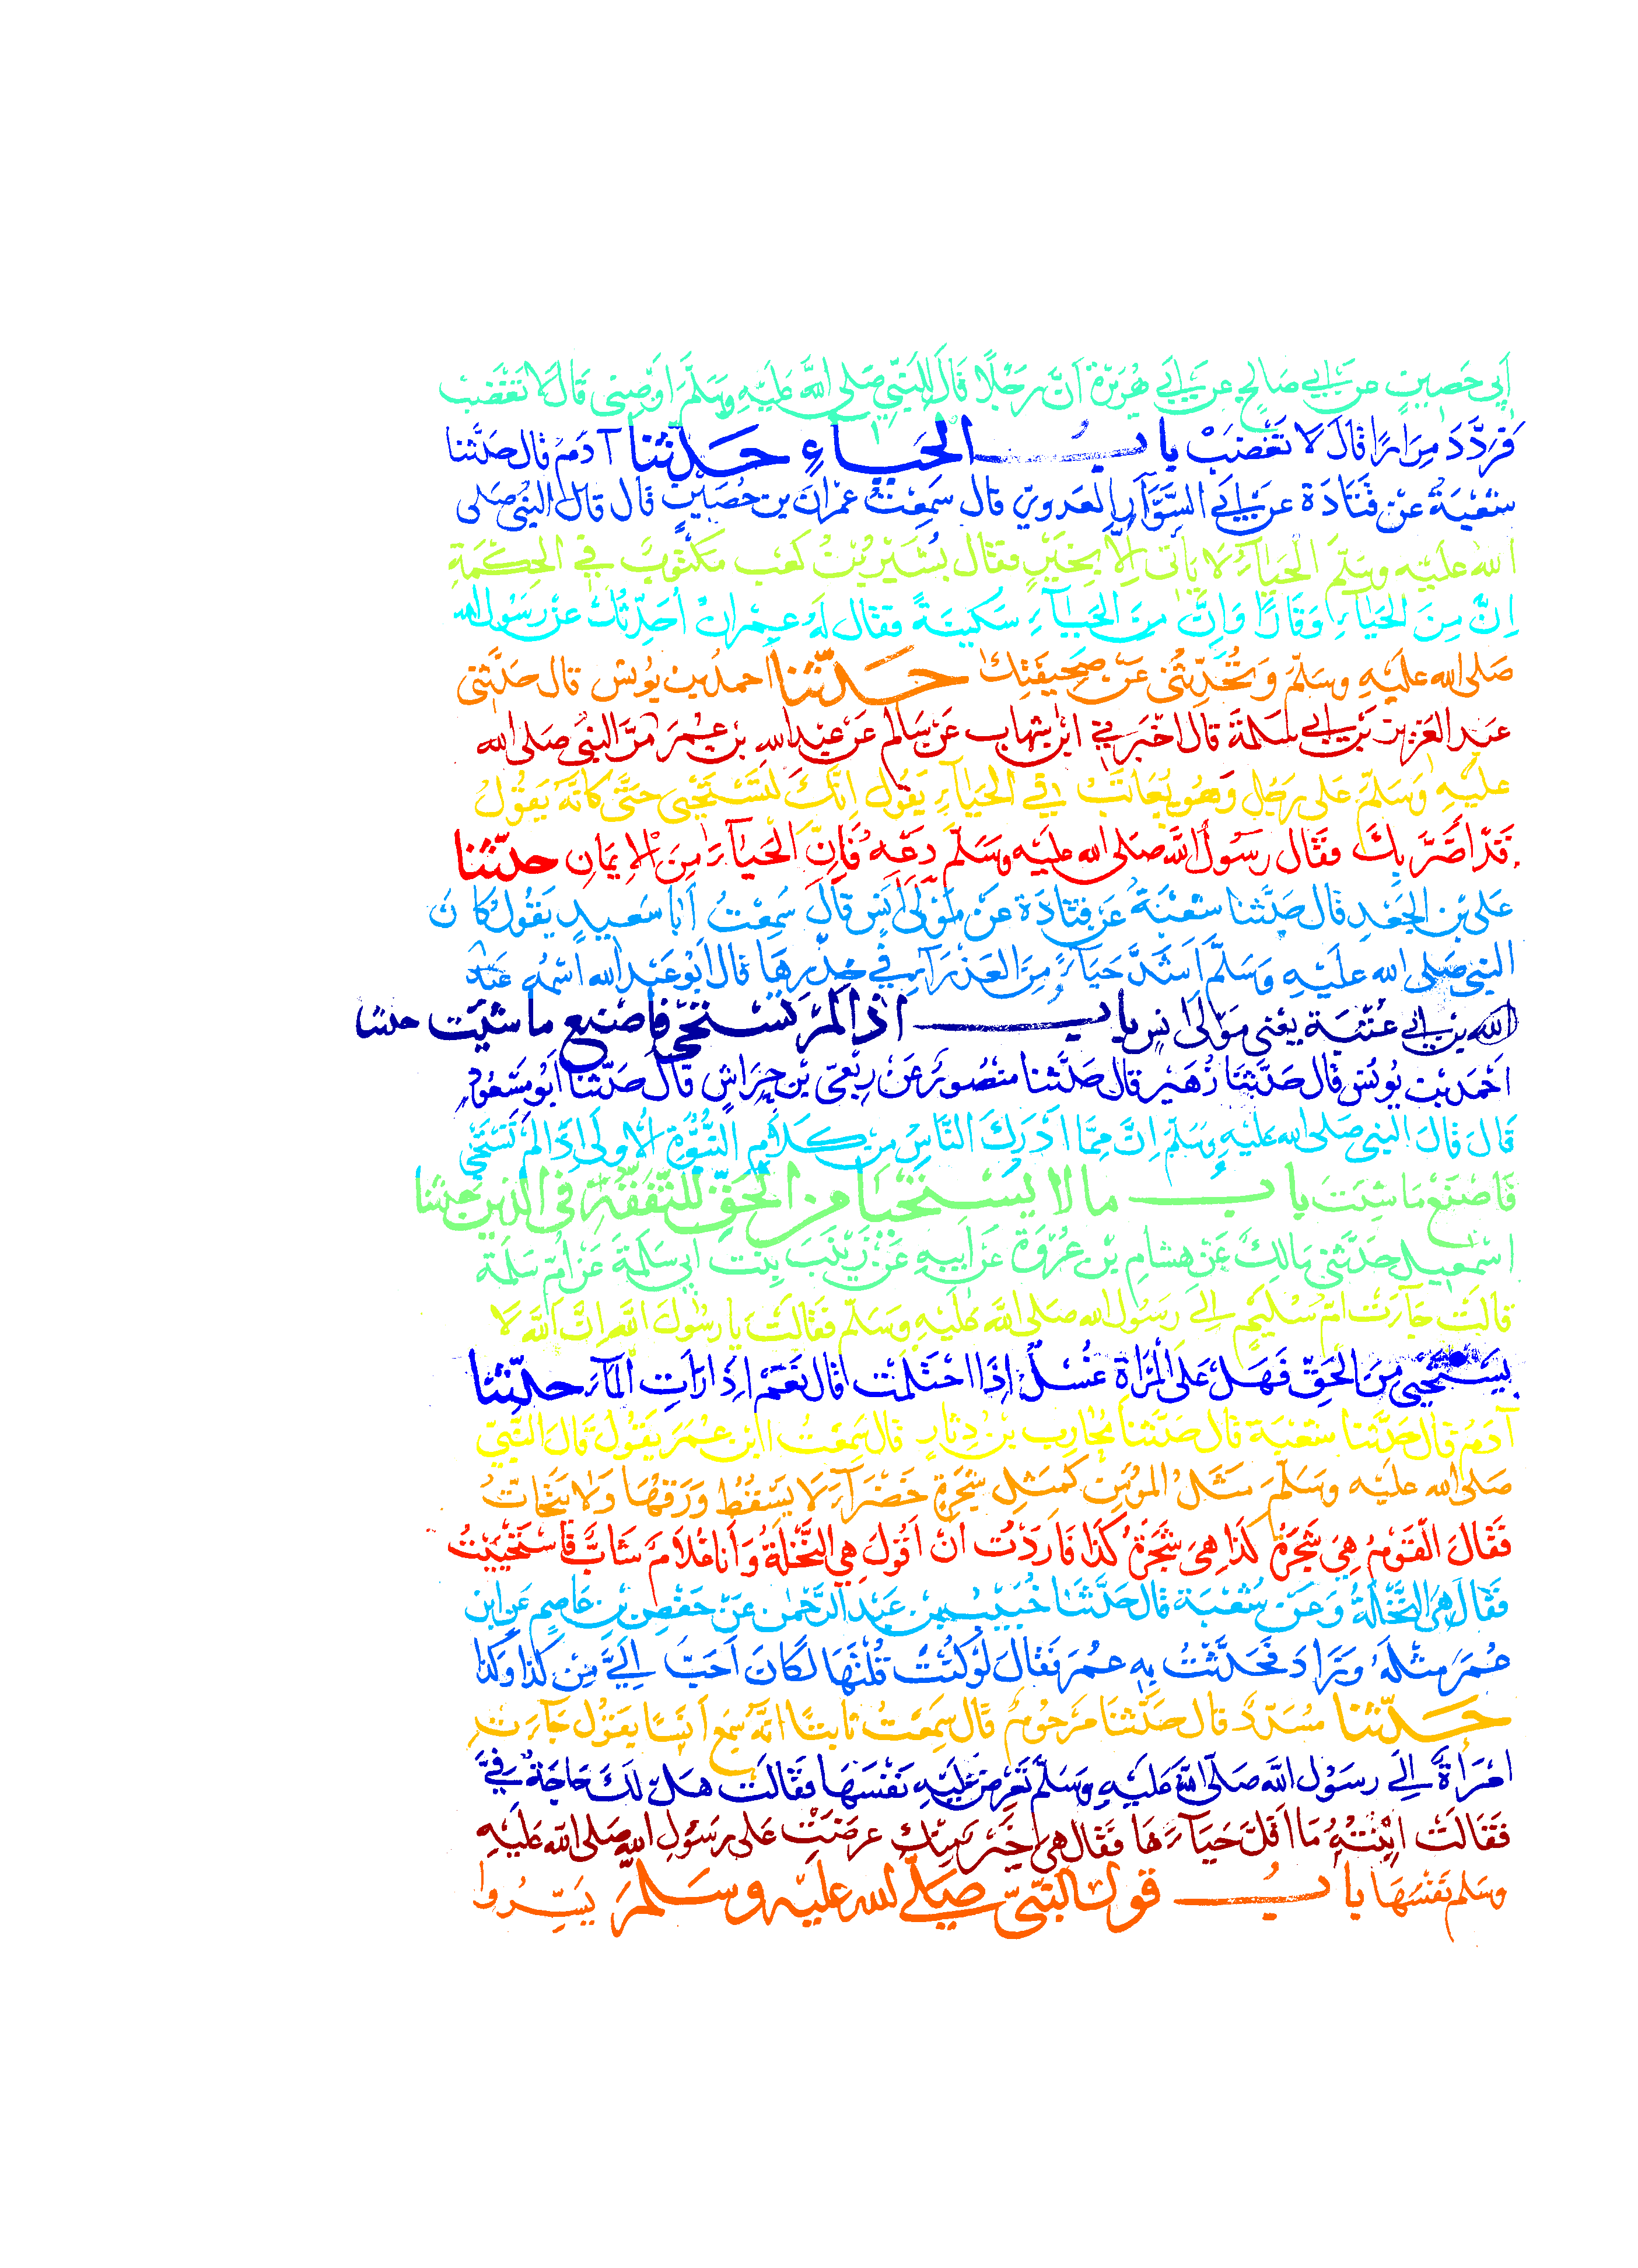 أَبِي حَصِينٍ عَنْ أَبِي صَالِحٍ عَنْ أَبِي هُرَيْرَةَ أَنَّ رَجُلًا قَالَ لِلنَّبِيِّ صَلَّى اللَّهُ عَلَيْهِ وَسَلَّمَ أَوْصِنِي قَالَ لَا تَغْضَبْ
فَرَدَّدَ مِرَارًا قَالَ لَا تَغْضَبْ بَابُ الْحَيَاءِ حَدَّثَنَا آدَمُ قَالَ حَدَّثَنَا
شُعْبَةُ عَنْ قَتَادَةَ عَنْ أَبِي السَّوَّارِ الْعَدَوِيِّ قَالَ سَمِعْتُ عِمْرَانَ بْنَ حُصَيْنٍ قَالَ قَالَ النَّبِيُّ صَلَّى
اللهُ عَلَيْهِ وَسَلَّمَ الْحَيَاءُ لَا يَأْتِي إِلَّا بِخَيْرٍ فَقَالَ بُشَيْرُ بْنُ كَعْبٍ مَكْتُوبٌ فِي الْحِكْمَةِ
اِنَّ مِنَ الْحَيَاءِ وَقَارًا وَاِنَّ مِنَ الْحَيَاءِ سَكِينَةً فَقَالَ لَهُ عِمْرَانُ أُحَدِّثُكَ عَنْ رَسُولِ اللهِ
صَلَّى الله عَلَيْهِ وَسَلَّمَ وَتُحَدِّثُنِي عَنْ صَحِيفَتِكَ حَدَّثَنَا احمدُ بن يُونُسَ قال حَدَّثَنِي
عَبْدُ الْعَزِيزِ بْنُ أَبِي سَلَمَةَ قَالَ اَخْبَرَنِي ابْنُ شِهَابٍ عَنْ سَالِمٍ عَنْ عَبْدِ اللهِ بْنِ عُمَرَ مَرَّ النَّبِيُّ صَلَّى الله
عَلَيْهِ وَسَلَّمَ عَلَى رَجُلٍ وَهُوَ يُعَاتَبُ فِي الْحَيَاءِ يَقُولُ إِنَّكَ لَتَسْتَحْيِي حَتَّى كَأَنَّهُ يَقُولُ
قَدْ أَضَرَّ بِكَ فَقَالَ رَسُولُ اللَّهِ صَلَّى الله عَلَيْهِ وَسَلَّمَ دَعْهُ فَإِنَّ الْحَيَاءَ مِنَ الْإِيمَانِ حَدَّثَنَا
عَلِيُّ بْنُ الْجَعْدِ قَالَ حَدَّثَنَا شُعْبَةُ عَنْ قَتَادَةَ عَنْ مَوْلَى أَنَسٍ قَالَ سَمِعْتُ أَبَا سَعِيدٍ يَقُولُ كَانَ
النَّبِيُّ صَلَّى الله عَلَيْهِ وَسَلَّمَ اَشَدَّ حَيَاءً مِنَ الْعَذْرَاءِ فِي خِدْرِهَا قَالَ اَبُو عَبْدِ الله اسْمُهُ عَبْدُ
الله بْنُ أَبِي عُتْبَةَ يَعْنِي مَوْلَى أَنَسٍ بَاب اِذَا لَمْ تَسْتَحْيِ فَاصْنَعْ مَا شِئْتَ حدثنا
اَحْمَدُ بْنُ يُونُسَ قَالَ حَدَّثَنَا زُهَيْرٌ قَالَ حَدَّثَنَا مَنْصُورٌ عَنْ رِبْعِيِّ بْنِ حِرَاشٍ قَالَ حَدَّثَنَا اَبُو مَسْعُودٍ
قَالَ قَالَ النَّبِيُّ صَلَّى الله عَلَيْهِ وَسَلَّمَ اِنَّ مِمَّا اَدْرَكَ النَّاسُ مِنْ كَلَامِ النُّبُوَّةِ الْاُولَى اِذَا لَمْ تَسْتَحْيِ
فَاصْنَعْ مَا شِئْتَ بَاب مَا لَا يُسْتَحْيَا مِنَ الْحَقِّ لِلتَّفَقُّهِ فِي الدِّينِ حدثنا
اِسْمٰعِيلُ حَدَّثَنِي مَالِكٌ عَنْ هِشَامِ بْنِ عُرْوَةَ عَنْ اَبِيهِ عَنْ زَيْنَبَ بِنْتِ أَبِي سَلَمَةَ عَنْ اُمِّ سَلَمَةَ
قَالَتْ جَاءَتْ اُمُّ سُلَيْمٍ اِلَى رَسُولِ اللهِ صَلَّى اللَّهُ عَلَيْهِ وَسَلَّمَ فَقَالَتْ يَا رَسُولَ اللَّهِ اِنَّ اللَّهَ لَا
يَسْتَحْيِي مِنَ الْحَقِّ فَهَلْ عَلَى الْمَرْأَةِ غُسْلٌ إِذَا احْتَلَمَتْ قَالَ نَعَمْ اِذَا رَاَتِ الْمَاءَ حَدَّثَنَا
آدَمُ قَالَ حَدَّثَنَا شُعْبَةُ قَالَ حَدَّثَنَا مُحَارِبُ بْنُ دِثَارٍ قَالَ سَمِعْتُ ابْنَ عُمَرَ يَقُولُ قَالَ النَّبِيُّ
صَلَّى الله عَلَيْهِ وَسَلَّمَ مَثَلُ الْمُؤْمِنِ كَمَثَلِ شَجَرَةٍ خَضْرَاءَ لَا يَسْقُطُ وَرَقُهَا وَلَا يَتَحَاتُّ
فَقَالَ الْقَوْمُ هِيَ شَجَرَةُ كَذَا هِيَ شَجَرَةُ كَذَا فَاَرَدْتُ اَنْ اَقُولَ هِيَ النَّخْلَةُ وَأَنَا غُلَامٌ شَابٌّ فَاسْتَحْيَيْتُ
فَقَالَ هِيَ النَّخْلَةُ وَعَنْ شُعْبَةَ قَالَ حَدَّثَنَا خُبَيْبُ بْنُ عَبْدِ الرَّحْمٰنِ عَنْ حَفْصِ بْنِ عَاصِمٍ عَنِ ابْنِ
عُمَرَ مِثْلَهُ وَزَادَ فَحَدَّثْتُ بِهِ عُمَرَ فَقَالَ لَوْ كُنْتَ قُلْتَهَا لَكَانَ اَحَبَّ اِلَيَّ مِنْ كَذَا وَكَذَا
حَدَّثَنَا مُسَدَّدٌ قَالَ حَدَّثَنَا مَرْحُومٌ قَالَ سَمِعْتُ ثَابِتًا اَنَّهُ سَمِعَ اَنَسًا يَقُولُ جَاءَتِ
امْرَأَةٌ اِلَى رَسُولِ اللَّهِ صَلَّى اللَّهُ عَلَيْهِ وَسَلَّمَ تَعْرِضُ عَلَيْهِ نَفْسَهَا فَقَالَتْ هَلْ لَكَ حَاجَةٌ فِيَّ
فَقَالَتِ ابْنَتُهُ مَا اَقَلَّ حَيَاءَهَا فَقَالَ هِيَ خَيْرٌ مِنْكِ عَرَضَتْ عَلَى رَسُولِ اللهِ صَلَّى اللهُ عَلَيْهِ
وَسَلَّمَ نَفْسَهَا بَابُ قَوْلِ النَّبِيِّ صَلَّى الله عَلَيْهِ وَسَلَّمَ يَسِّرُوا